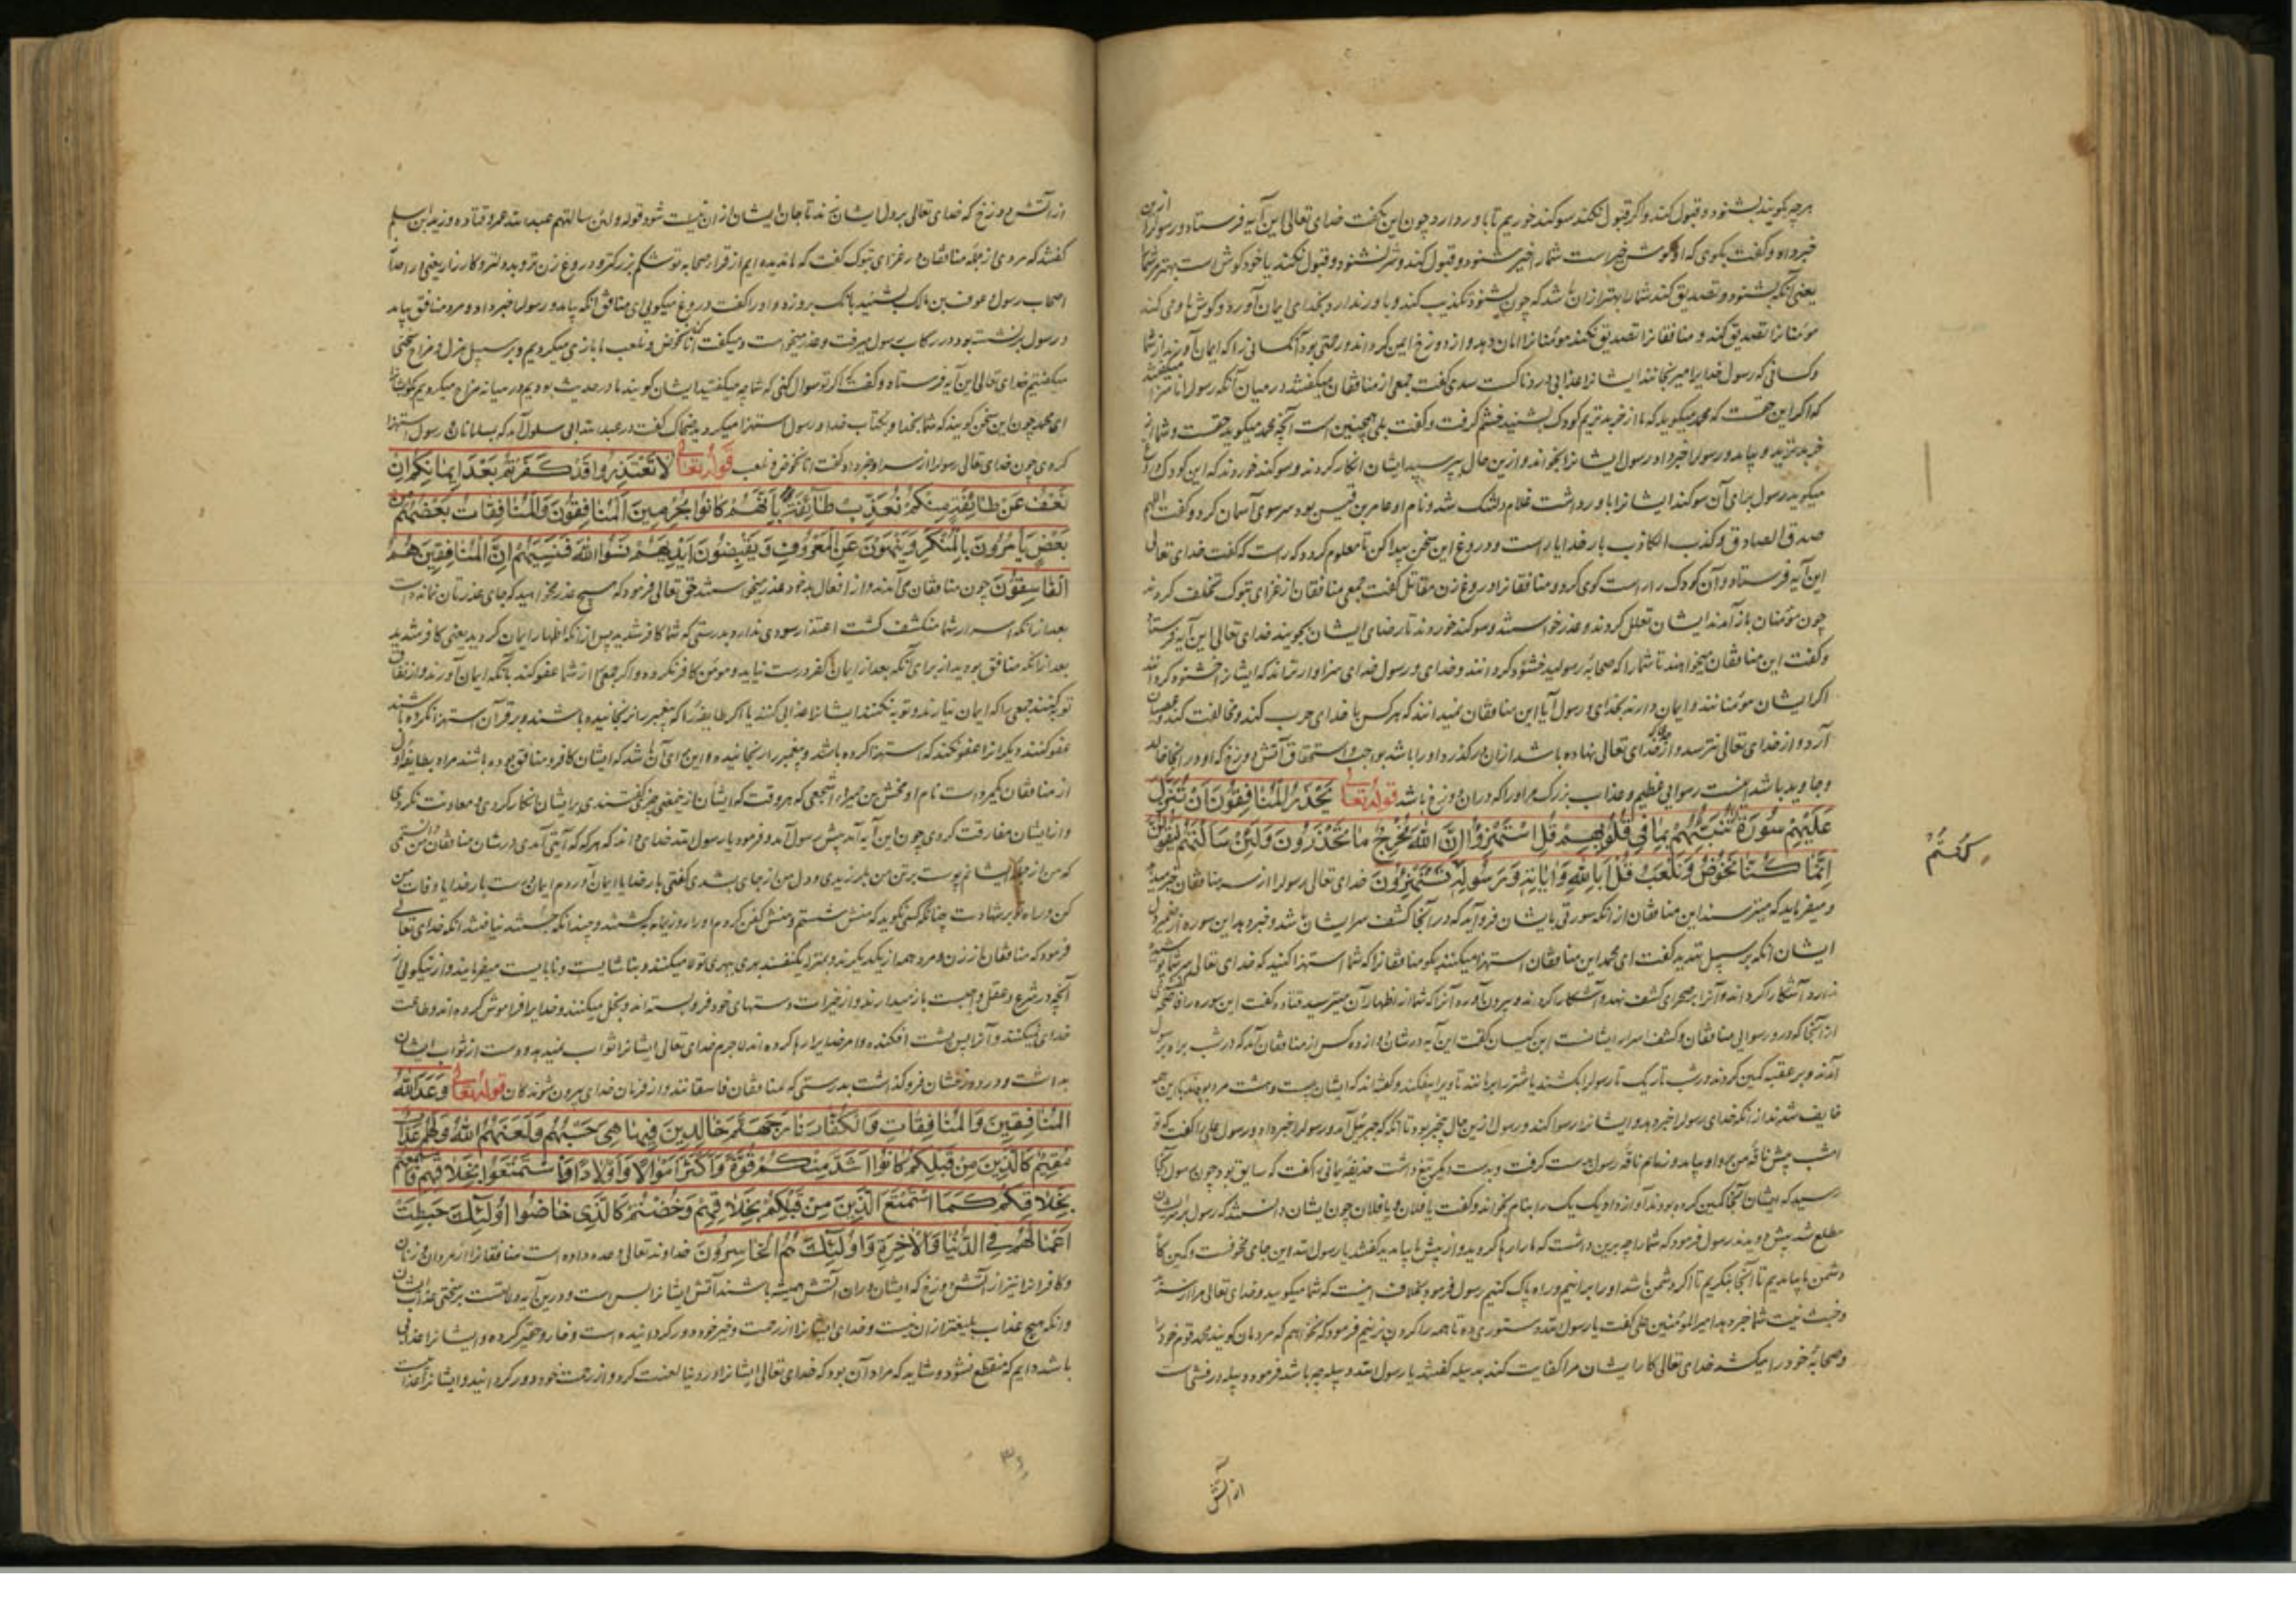 هرچه گویند بشنود و قبول کند و اگر قبول نکند سوکند خوریم تا باور دارد چون این بگفت خدای تعالی این آیه فرستاد و رسولرا ازین
خبر داد و گفت بگوی که او گوش خیر است شما را خیر شنود و قبول کند و شر نشنود و قبول نکند یا خود گوش است بهتر مر شما
یعنی آنکه بشنود و تصدیق کند شما را بهتر ازان باشد که چون بشنود تکذیب کند و باور ندارد بخدای ایمان آورد و گوش ها وحی کند
مؤمنانرا تصدیق کند و منافقانرا تصدیق نکند مؤمنانرا امان دهد و از دوزخ ایمن کرداند و رحمتی بود آنکسانی را که ایمان آورند از شما
و کسانی که رسول خدایرا میرنجانند ایشانرا عذابی دردناکست سدی گفت جمعی از منافقان میگفتند در میان آنکه رسولرا ناسزا میگفتند
که اگر این حقست که محمد میگوید که ما از خر بدتریم کودک بشنید خشم گرفت و گفت بلی همچنین است آنچه محمد میگوید حقست و شما از
خر بدترید و بیامد و رسولرا خبر داد رسول ایشانرا بخواند و ازین حال پرسید ایشان انکار کردند و سوکند خوردند که این کودک دروغ
میگوید رسول برای آن سوکند ایشانرا باور داشت غلام دلتنگ شد و نام او عامر بن قیس بود سر سوی آسمان کرد و گفت اللهم
صدق الصادق و کذب الکاذب بار خدایا راست و دروغ این سخن پیدا کن تا معلوم کردد که راست که گفت خدای تعالی
این آیه فرستاد و آن کودک را راست کوی کرد و منافقانرا دروغ زن مقاتل گفت جمعی منافقان از غزای تبوک تخلف کردند
چون مؤمنان باز آمدند ایشان تعلل کردند و عذر خواستند و سوکند خوردند تا رضای ایشان بجویند خدای تعالی این آیه فرستاد
و گفت این منافقان میخواهند تا شما را که صحابه رسولید خشنود کردانند و خدای و رسول خدای سزاوارترند که ایشانرا خشنود کردانند
اگر ایشان مؤمنانند و ایمان دارند بخدای و رسول آیا این منافقان نمیدانند که هر کس با خدای حرب کند و مخالفت کند و عصیان
آرد و از خدای تعالی نترسد و از حدی که خدای تعالی نهاده باشد ازان درگذرد او را باشد بواجب و استحقاق آتش دوزخ که او در انجا خالد
و جاوید باشد اینست رسوایی عظیم و عذاب بزرگ مر او را که دران دوزخ باشد قوله تعالی يَحْذَرُ الْمُنَافِقُونَ اَنْ تُنَزَّلَ
عَلَيْهِمْ سُورَةٌ تُنَبِّئُهُمْ بِمَا فِي قُلُوبِهِمْ قُلِ اسْتَهْزِؤُا اِنَّ اللّٰهَ مُخْرِجٌ مَا تَحْذَرُونَ وَلَئِنْ سَاَلْتَهُمْ لَيَقُولُنَّ
اِنَّمَا كُنَّا نَخُوضُ وَنَلْعَبُ قُلْ اَبِاللّٰهِ وَاٰيَاتِهِ وَرَسُولِهِ تَسْتَهْزِؤُنَ خدای تعالی رسولرا از سر منافقان خبر میدهد
كُنْتُمْ
و میفرماید که میترسند این منافقان از انکه سورتی بایشان فرو آید که در آنجا کشف سر ایشان باشد و خبر دهد این سوره از ضمیر دل
ایشان انکه بر سبیل تهدید گفت ای محمد این منافقان استهزا میکنند بگو منافقانرا که شما استهزا کنید که خدای تعالی سر شما پوشیده
ندارد آشکارا کرداند و آنرا بر صحرای کشف نهد و آشکارا کرداند و بیرون آورد آنرا که شما از اظهار آن میترسید قتاده گفت این سوره را فاضحه گفتندی
از آنجا که در و رسوایی منافقان و کشف اسرار ایشانست ابن کیسان گفت این آیه در شان دوازده کس از منافقان آمد که در شب براه رسول
آمدند و بر عقبه کمین کردند در شب تاریک تا رسولرا بکشند یا شتر او را برمانند تا ویرا بیفکند
خایف شدند از انکه خدای رسولرا خبر دهد و ایشانرا رسوا کند و رسول ازین حال بیخبر بود تا انکه که جبرئیل آمد و رسولرا خبر داد رسول علی را گفت که تو
امشب پیش ناقه من رو او بیامد و زمام ناقه رسول بدست گرفت و بدست دیگر تیغ داشت حذیفه یمانی را گفت که سایق بود چون رسول آنجا
رسید که ایشان آنجا کمین کرده بودند آواز داد و یک یک را بنام بخواند و گفت یا فلان و یا فلان چون ایشان دانستند که رسول بر سر ایشان
مطلع شد پیش دویدند رسول فرمود که شما را چه برین داشت که ما را رها کردید و از پیش ما بیامدید گفتند یا رسول الله این جای مخوفست و کمین گاه
دشمن ما بیامدیم تا آنجا بنگریم تا اگر دشمن باشد او را برانیم و راه پاک کنیم رسول فرمود بخلاف اینست که شما میگویید و خدای تعالی مرا از سر بد
و خبث نیت شما خبر داد امیرالمؤمنین علی گفت یا رسول الله دستوری ده تا همه را گردن بزنیم فرمود که نخواهم که مردمان گویند محمد قوم خود را
و صحابه خود را میکشد خدای تعالی کار ایشان مرا کفایت کند بدبیله گفتند یا رسول الله دبیله چه باشد فرمود دبیله درفشی است
از آتش
از آتش دوزخ که خدای تعالی بر دل ایشان زند تا جان ایشان از ان نیست شود قوله ولئن سالتهم عبدالله عمر و قتاده و زید ابن اسلم
گفتند که مردی از جمله منافقان در غزای تبوک گفت که ما ندیده ایم از قرا و صحابه تو شکم بزرگتر و دروغ زن تر و بددل تر و کارزار یعنی
اصحاب رسول عوف بن مالک بشنید بانک برو زد و او را گفت دروغ میگویی ای منافق آنکه بیامد و رسولرا خبر داد و مرد منافق بیامد
و رسول برنشسته بود و در رکاب رسول میرفت و عذر میخواست و میگفت انما کنا نخوض و نلعب ما بازی میکردیم و بر سبیل هزل و مزاح سخنی
میگفتیم خدای تعالی این آیه فرستاد و گفت اگر تو سوال کنی که شما چه میگفتید ایشان گویند ما در حدیث بودیم و در میانه مزاح میکردیم بگو ایشانرا
ای محمد چون این سخن گویند که شما بخدا و بکتاب خدا و رسول استهزا میکردید ضحاک گفت در عبدالله ابی سلول آمد که بسلامان و رسول استهزا
کردی چون خدای تعالی رسولرا از سر او خبر داد گفت انا نخوض و نلعب قوله تعالی لَا تَعْتَذِرُوا قَدْ كَفَرْتُمْ بَعْدَ اِيمَانِكُمْ اِنْ
نَعْفُ عَنْ طَائِفَةٍ مِنْكُمْ نُعَذِّبْ طَائِفَةً بِاَنَّهُمْ كَانُوا مُجْرِمِينَ اَلْمُنَافِقُونَ وَالْمُنَافِقَاتُ بَعْضُهُمْ مِنْ
بَعْضٍ يَاْمُرُونَ بِالْمُنْكَرِ وَيَنْهَوْنَ عَنِ الْمَعْرُوفِ وَيَقْبِضُونَ اَيْدِيَهُمْ نَسُوا اللّٰهَ فَنَسِيَهُمْ اِنَّ الْمُنَافِقِينَ هُمُ
الْفَاسِقُونَ چون منافقان می آمدند و از افعال بد خود عذر میخواستند حق تعالی فرمود که هیچ عذر مخواهید که جای عذرتان نمانده است
بعد از انکه اسرار شما منکشف گشت اعتذار سودی ندارد بدرستی که شما کافر شدید پس از انکه اظهار ایمان کردید یعنی کافر شدید
بعد ازانکه منافق بودید از برای آنکه بعد از ایمان کفر درست نیاید و مومن کافر نکردد و اگر جمعی از شما عفو کند بانکه ایمان آورند و از نفاق
توبه کنند جمعی را که ایمان نیارند و توبه نکنند ایشانرا عذابی کند یا اگر طایفه را که پیغمبر را نرنجانیده باشند و بر قرآن استهزا نکرده باشند
عفو کنند دیگرانرا عفو نکند که استهزا کرده باشد و پیغمبر را رنجانیده و این برای آن باشد که ایشان کافر و منافق بوده باشند مراد بطایفه اول
از منافقان یکمرد است نام او مخشی بن حمیر اشجعی که هر وقت که ایشان از یعنی چیزی گفتندی بر ایشان انکار کردی و معاونت نکردی
و از ایشان مفارقت کردی چون این آیه آمد پیش رسول آمد و فرمود یا رسول الله خدای داند که هر که که آیتی آمدی در شان منافقان من دانستمی
که من از جمله ایشانم پوست بر تن من بلرزیدی و دل من از جای بشدی گفتی بار خدایا ایمان آوردم ایمان درست بار خدایا وفات من
کن در راه تو بر شهادت چنانکه کسی نگوید که منش شستم و منش کفن کردم او را روز یمامه بکشتند و چندانکه جستند نیافتند انکه خدای تعالی
فرمود که منافقان از زن و مرد همه از یکدیگرند
آنچه در شرع و عقل واجبست باز میدارند و از خیرات دستهای خود فرو بسته اند و بخل میکنند و خدایرا فراموش کرده اند و طاعت
خدای نمیکنند و آنرا پس پشت افکنده و امر خدایرا رها کرده اند لاجرم خدای تعالی ایشانرا ثواب نمیدهد و دست از ثواب ایشان
بداشت و در دوزخشان فرو گذاشت بدرستی که منافقان فاسقانند و از فرمان خدای بیرون شوندگان قوله تعالی وَعَدَ اللّٰهُ
الْمُنَافِقِينَ وَالْمُنَافِقَاتِ وَالْكُفَّارَ نَارَ جَهَنَّمَ خَالِدِينَ فِيهَا هِيَ حَسْبُهُمْ وَلَعَنَهُمُ اللّٰهُ وَلَهُمْ عَذَابٌ
مُقِيمٌ كَالَّذِينَ مِنْ قَبْلِكُمْ كَانُوا اَشَدَّ مِنْكُمْ قُوَّةً وَاَكْثَرَ اَمْوَالًا وَاَوْلَادًا فَاسْتَمْتَعُوا بِخَلَاقِهِمْ فَاسْتَمْتَعْتُمْ
بِخَلَاقِكُمْ كَمَا اسْتَمْتَعَ الَّذِينَ مِنْ قَبْلِكُمْ بِخَلَاقِهِمْ وَخُضْتُمْ كَالَّذِي خَاضُوا اُولٰئِكَ حَبِطَتْ
اَعْمَالُهُمْ فِي الدُّنْيَا وَالْاٰخِرَةِ وَاُولٰئِكَ هُمُ الْخَاسِرُونَ خداوند تعالی وعده داده است منافقانرا از مردان و زنان
و کافرانرا نیز از آتش دوزخ که ایشان دران آتش همیشه باشند آتش ایشانرا بس است و درین آیه دلالتست بر سختی عذاب ایشان
و انکه هیچ عذاب بلیغتر ازان نیست و خدای ایشانرا از رحمت و خیر خود دور کردانیده است و خار و حقیر کرده و ایشانرا عذابی
باشد دایم که منقطع نشود و شاید که مراد آن بود که خدای تعالی ایشانرا در دنیا لعنت کرد و از رحمت خود دور کردانید و ایشانرا عذاب